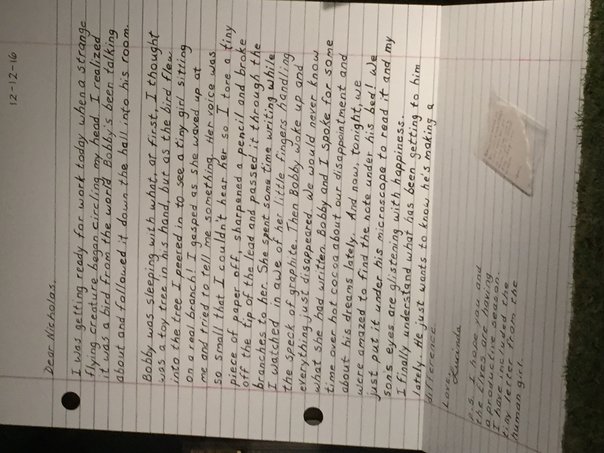 12-12-16
Dear Nicholas,
I was getting ready for work today when a strange
flying creature began circling my head. I realized
it was a bird from the world Bobby's been talking
about and followed it down the hall into his room.
Bobby was sleeping with what, at first, I thought
was a toy tree in his hand, but as the bird flew
into the tree I peered in to see a tiny girl sitting
on a real branch! I gasped as she waved up at
me and tried to tell me something. Her voice was
so small that I couldn't hear her so I tore a tiny
piece of paper off, sharpened a pencil and broke
off the tip of the lead and passed it through the
branches to her. She spent some time writing while
I watched in awe of her little fingers handling
the speck of graphite. Then Bobby woke up and
everything just disappeared. We would never know
what she had written. Bobby and I spoke for some
time over hot cocoa about our disappointment and
about his dreams lately. And now, tonight, we
were amazed to find the note under his bed! We
just put it under his microscope to read it and my
son's eyes are glistening with happiness.
I finally understand what has been getting to him
lately. He just wants to know he's making a
difference.
Love,
Lucinda
P.S. I hope you and
the elves are having
a productive season.
I have included the
tiny letter from the
human girl.